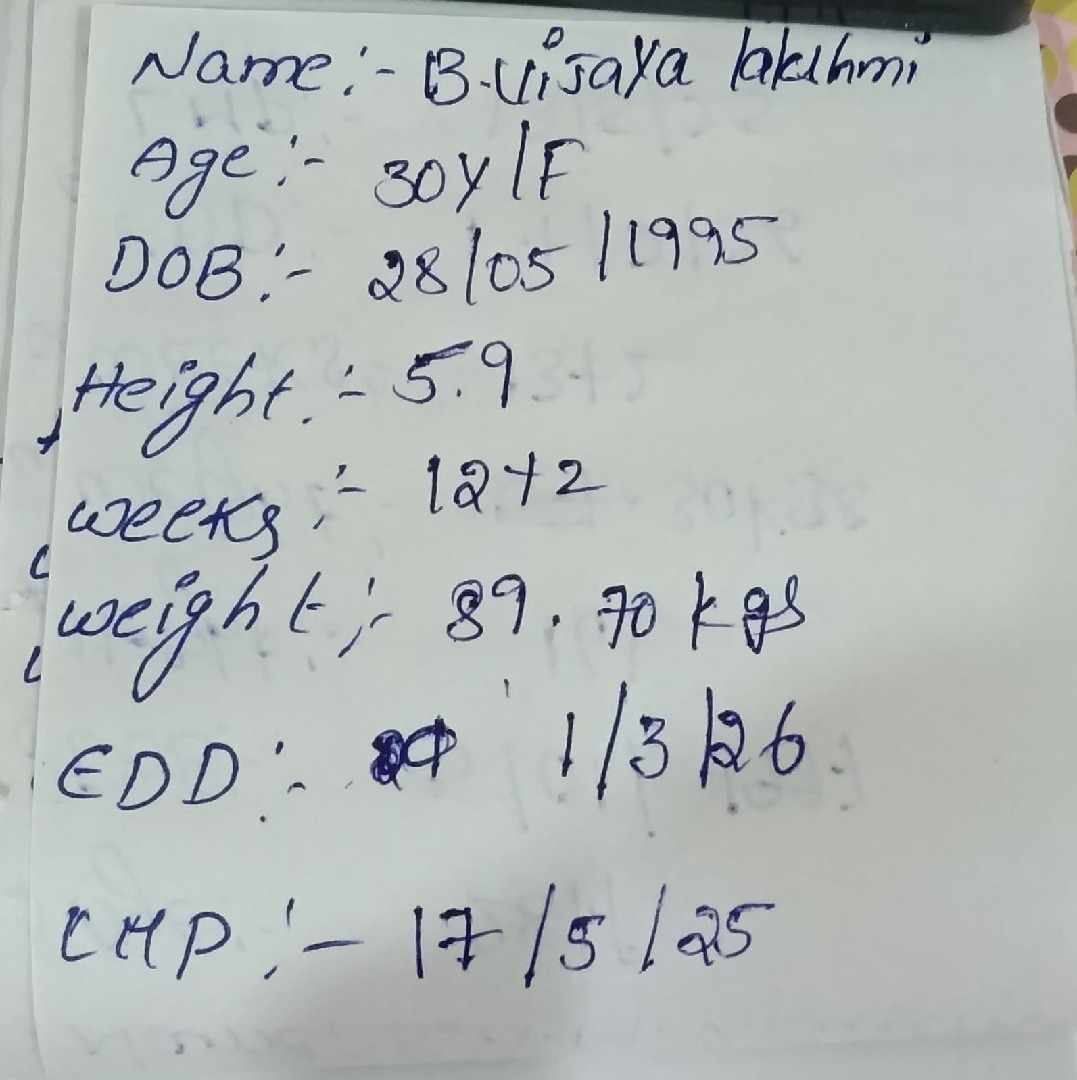 Name:- B.Vijaya lakshmi
Age:- 30Y/F
DOB:- 28/05/1995
Height:- 5.9
weeks:- 12+2
weight:- 89.70 kgs
EDD:- 1/3/26
LMP:- 17/5/25